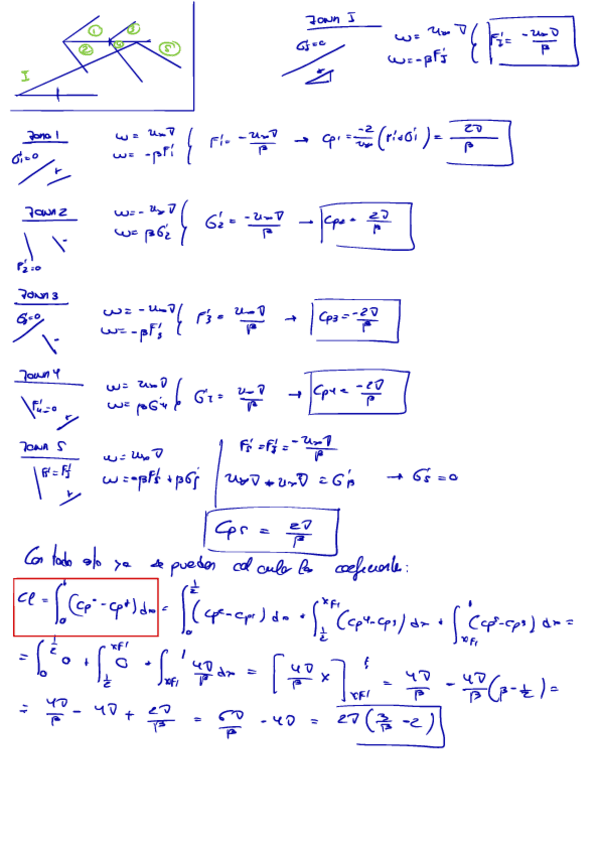 ① ③
② ④ ⑤
I
ZONA I
σj=0
w = u∞ ∇
w = -βF'j
F'j = -u∞∇/β
ZONA 1
σ1'=0
w = u∞ ∇
w = -βF1'
F1' = -u∞∇/β → Cp1 = -2/u∞ (F1'+σ1') = 2∇/β
ZONA 2
F2'=0
w = -u∞∇
w = βG2'
G2' = -u∞∇/β → Cp2 = 2∇/β
ZONA 3
G3=0
w = -u∞∇
w = -βF3'
F3' = u∞∇/β → Cp3 = -2∇/β
ZONA 4
F4'=0
w = u∞∇
w = βG4'
G2' = u∞∇/β → Cp4 = -2∇/β
ZONA 5
F5' = Fj'
w = u∞∇
w = -βF5' + βGj'
F5' = Fj' = -u∞∇/β
u∞∇ + u∞∇ = G'β → G5' = 0
Cp5 = 2∇/β
Con todo esto ya se pueden calcular los coeficientes:
Cl = ∫₀¹ (Cp⁻ - Cp⁺) dx = ∫₀^½ (Cp2 - Cp1) dx + ∫_½^xF1 (Cp4 - Cp3) dx + ∫_xF1^1 (Cp5 - Cp3) dx =
= ∫₀^½ 0 + ∫_½^xF1 0 + ∫_xF1^1 4∇/β dx = [4∇/β x]_xF1^1 = 4∇/β - 4∇/β (β - ½) =
= 4∇/β - 4∇ + 2∇/β = 6∇/β - 4∇ = 2∇(3/β - 2)